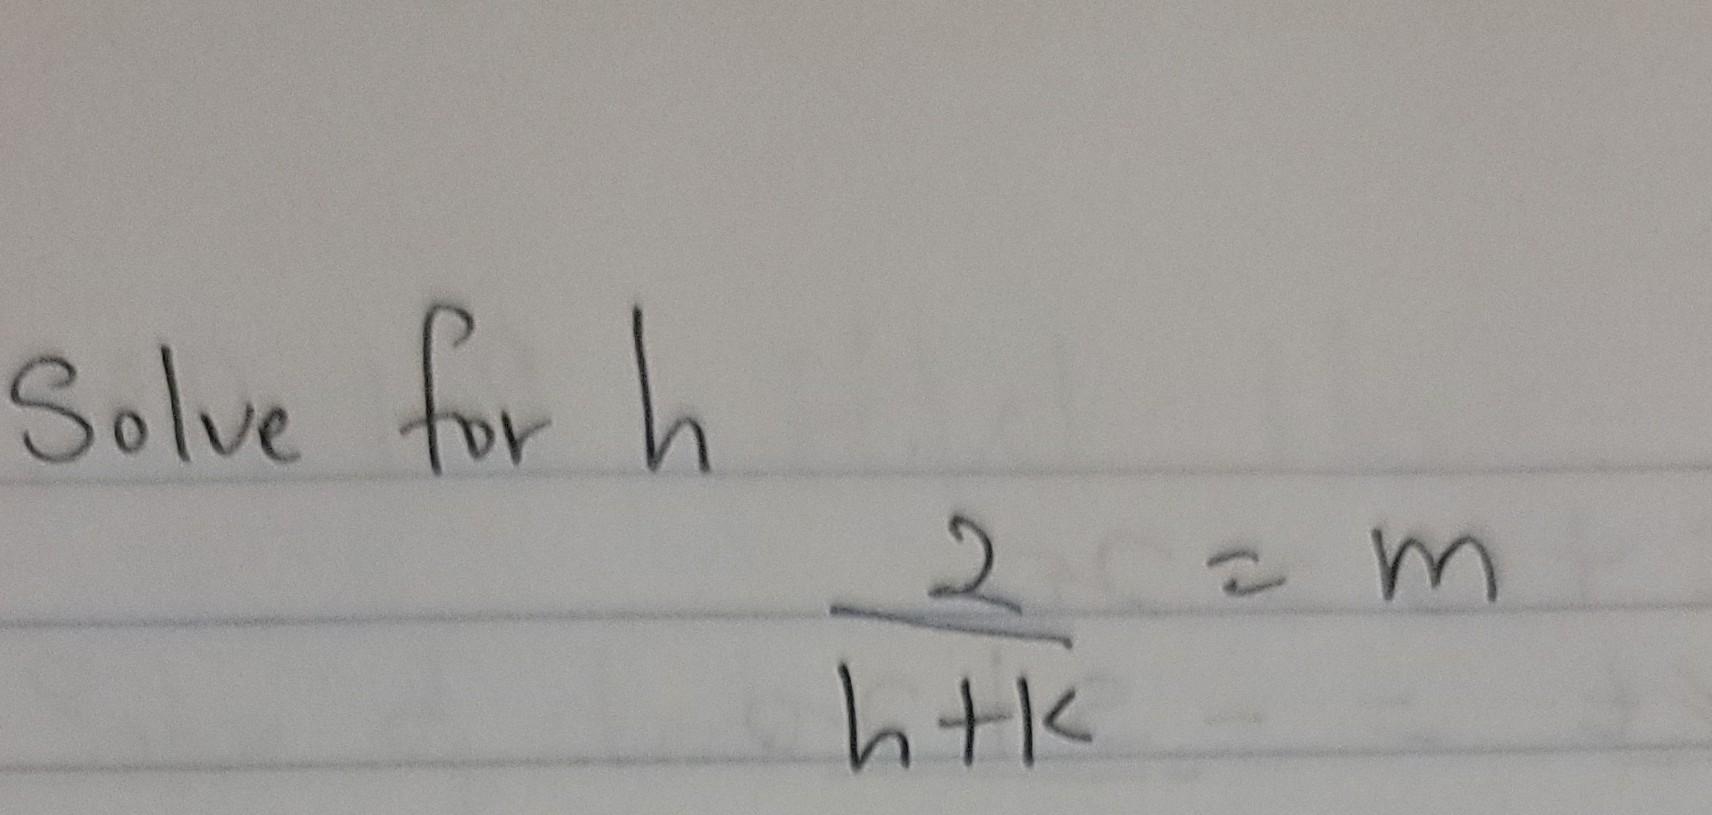 Solve for h
2/h+k = m